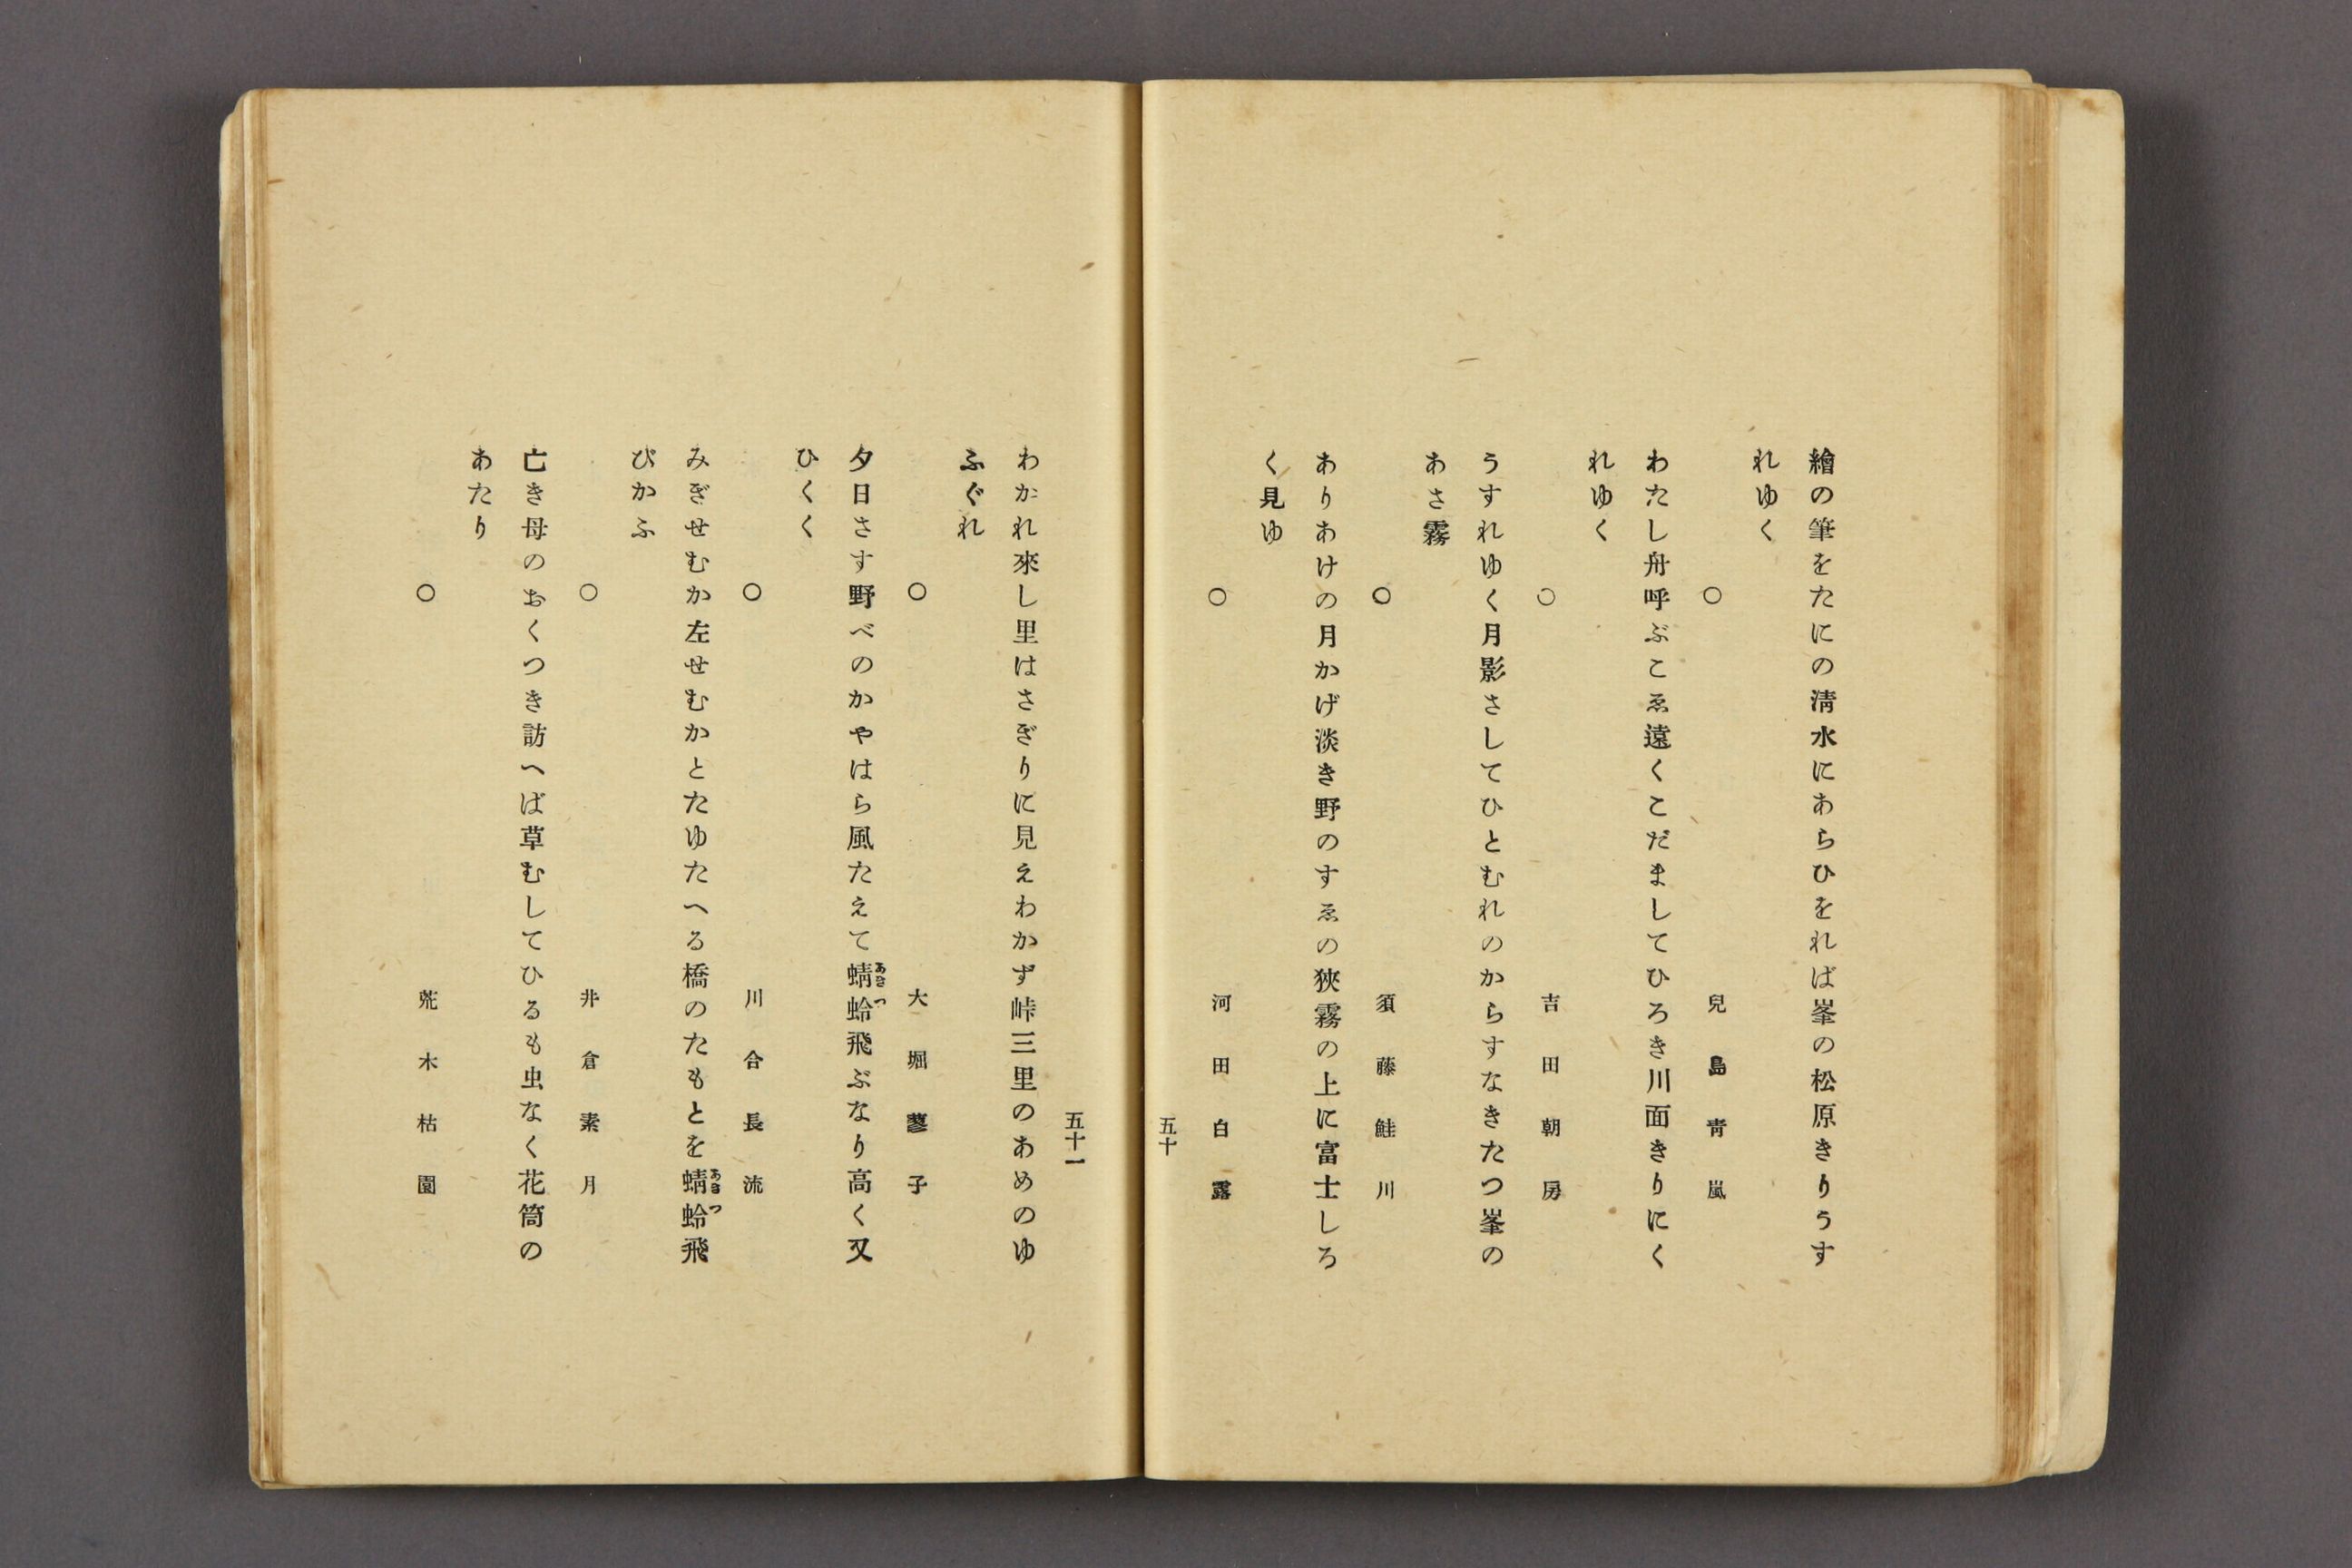 繪の筆をたにの淸水にあらひをれば峯の松原きりうす
れゆく
○ 兒島靑嵐
わたし舟呼ぶこゑ遠くこだましてひろき川面きりにく
れゆく
○ 吉田朝房
うすれゆく月影さしてひとむれのからすなきたつ峯の
あさ霧
○ 須藤鮭川
ありあけの月かげ淡き野のすゑの狹霧の上に富士しろ
く見ゆ
○ 河田白露
五十
五十一
わかれ來し里はさぎりに見えわかず峠三里のあめのゆ
ふぐれ
○ 大堀蓼子
夕日さす野べのかやはら風たえて蜻蛉飛ぶなり高く又
あきつ
ひくく
○ 川合長流
みぎせむか左せむかとたゆたへる橋のたもとを蜻蛉飛
あきつ
びかふ
○ 井倉素月
亡き母のおくつき訪へば草むしてひるも虫なく花筒の
あたり
○ 荒木枯園